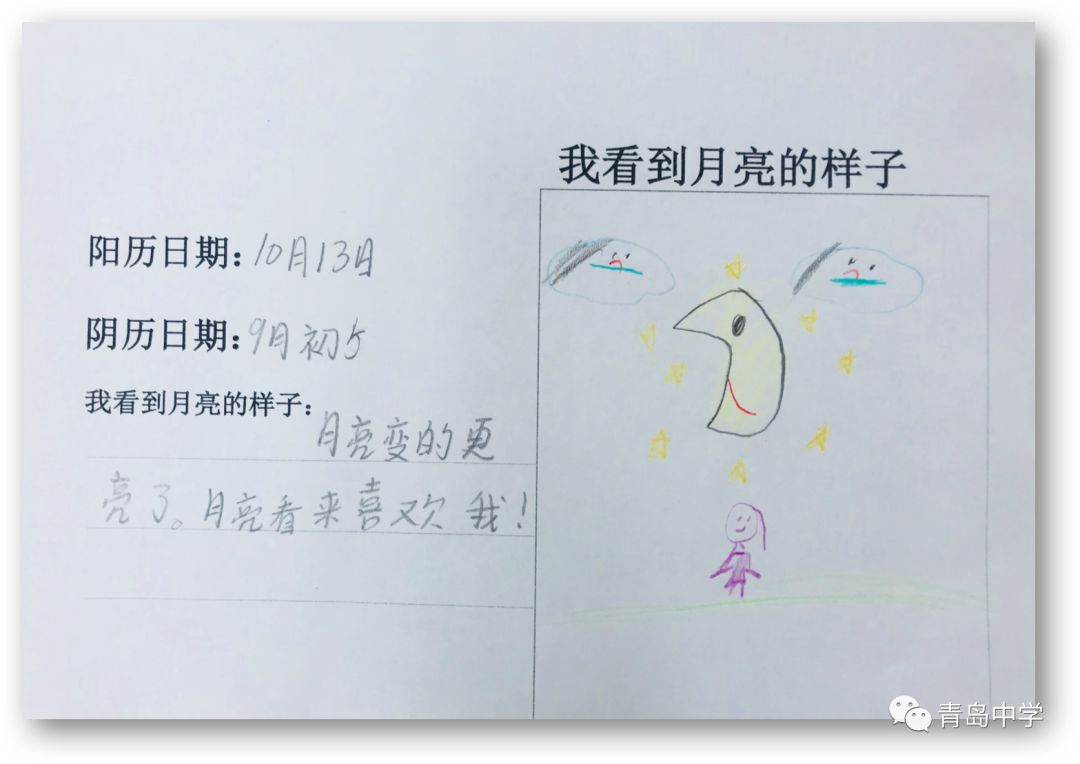 我看到月亮的样子
阳历日期：10月13日
阴历日期：9月初5
我看到月亮的样子：
月亮变的更
亮了。月亮看来喜欢我！
青岛中学